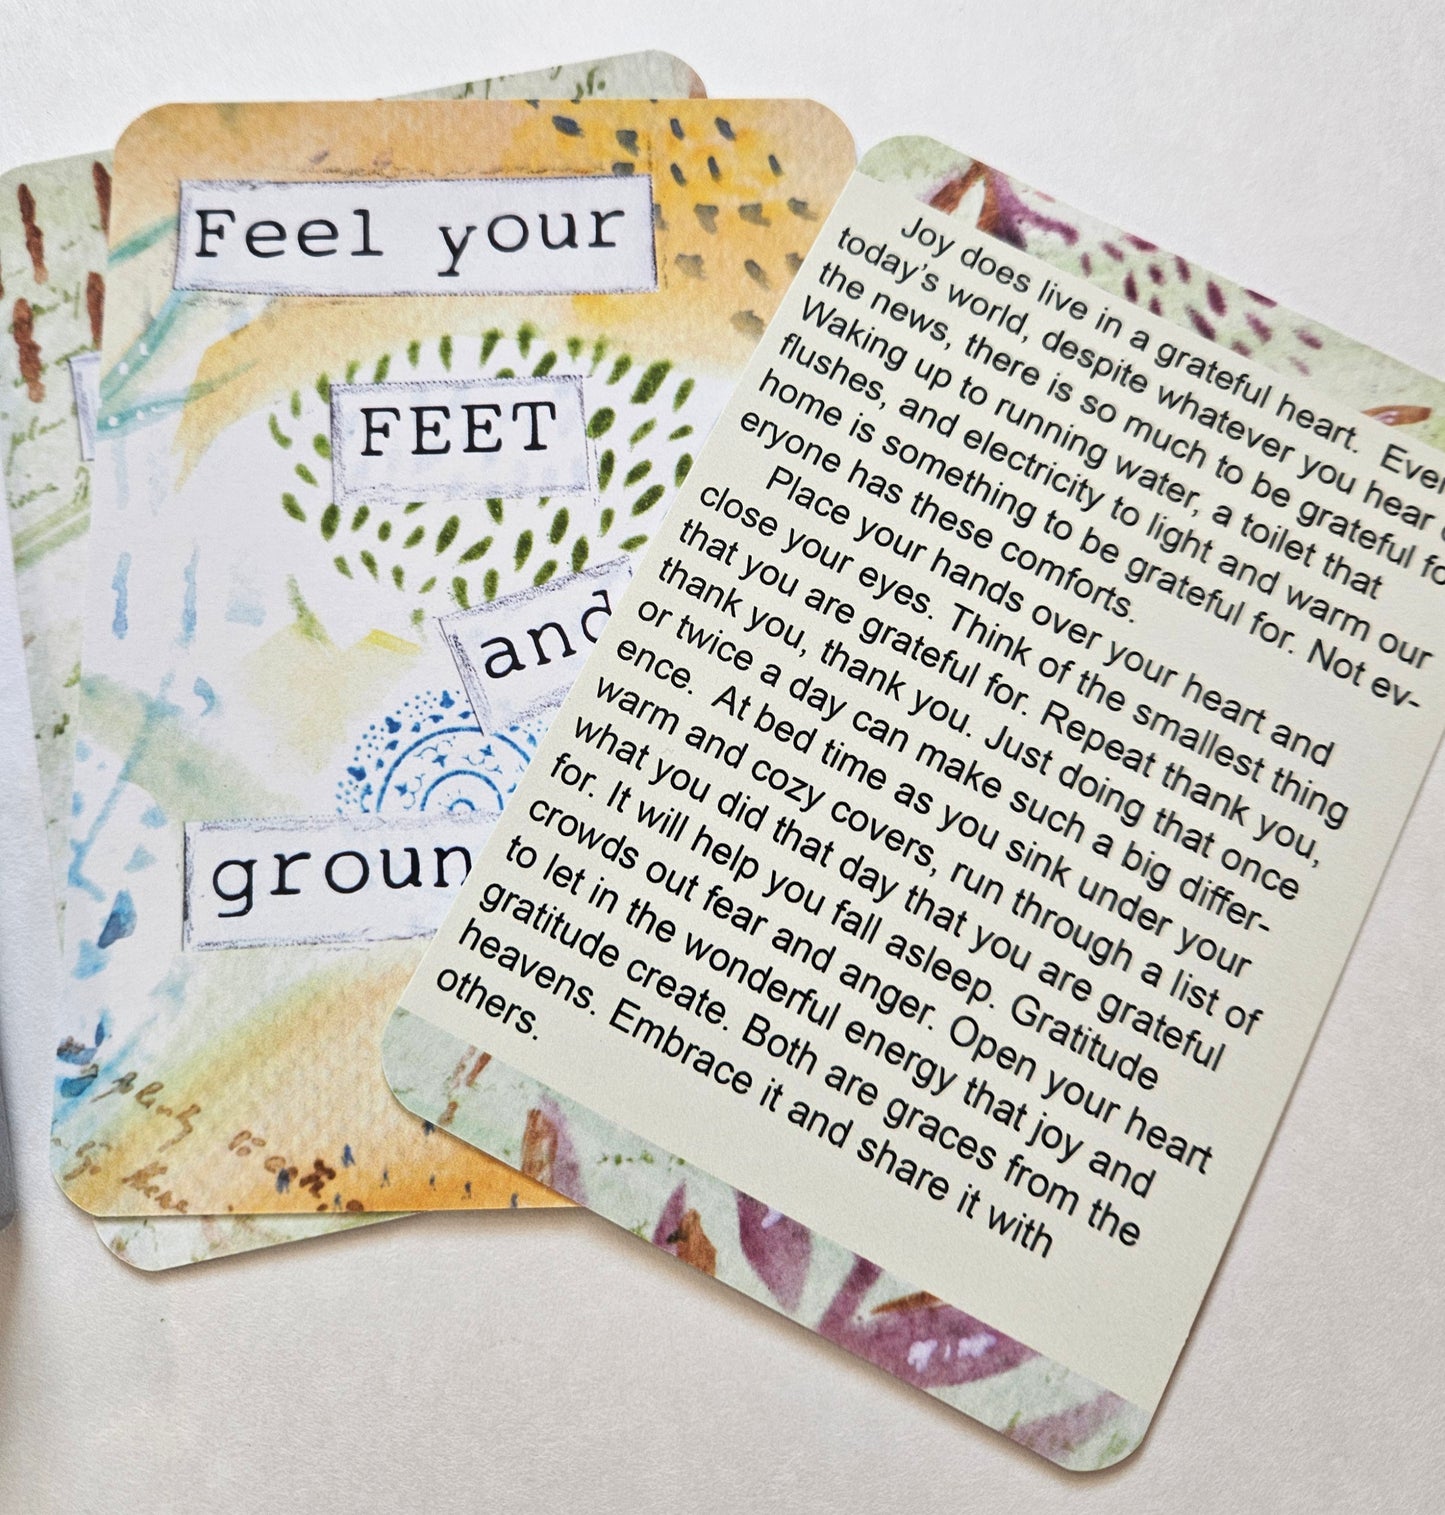 Feel your
FEET
and
groun
Joy does live in a grateful heart. Even
today's world, despite whatever you hear
the news, there is so much to be grateful fo
Waking up to running water, a toilet that
flushes, and electricity to light and warm our
home is something to be grateful for. Not ev-
eryone has these comforts.
Place your hands over your heart and
close your eyes. Think of the smallest thing
that you are grateful for. Repeat thank you,
thank you, thank you. Just doing that once
or twice a day can make such a big differ-
ence. At bed time as you sink under your
warm and cozy covers, run through a list of
what you did that day that you are grateful
for. It will help you fall asleep. Gratitude
crowds out fear and anger. Open your heart
to let in the wonderful energy that joy and
gratitude create. Both are graces from the
heavens. Embrace it and share it with
others.